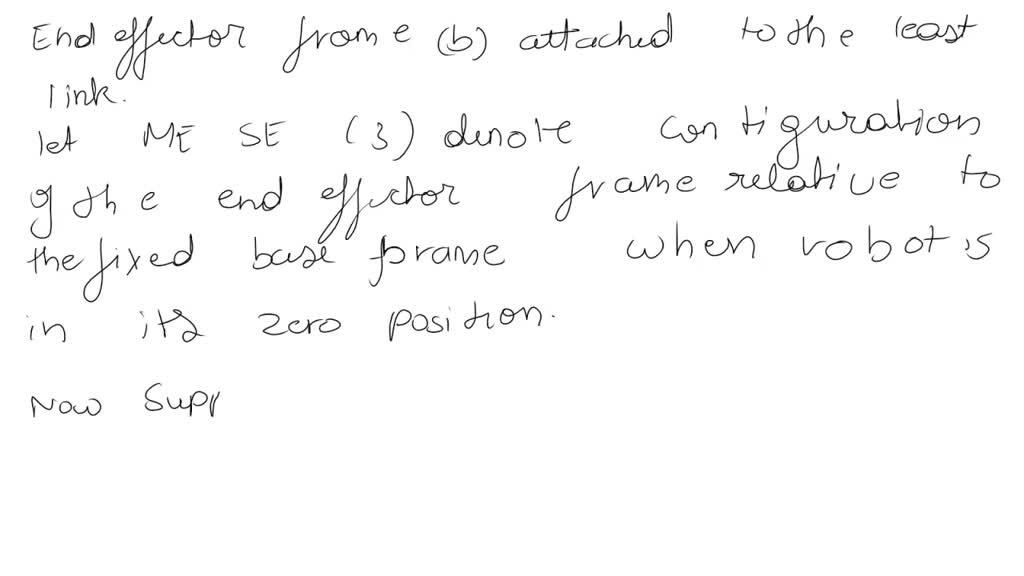 End effector frome (b) attached to the least
link.
let ME SE (3) denote configuration
of the end effector frame relative to
the fixed base frame when robot is
in its zero position.
Now Supp